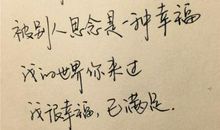 被别人思念是一种幸福
我的世界你来过
我很幸福，已满足.